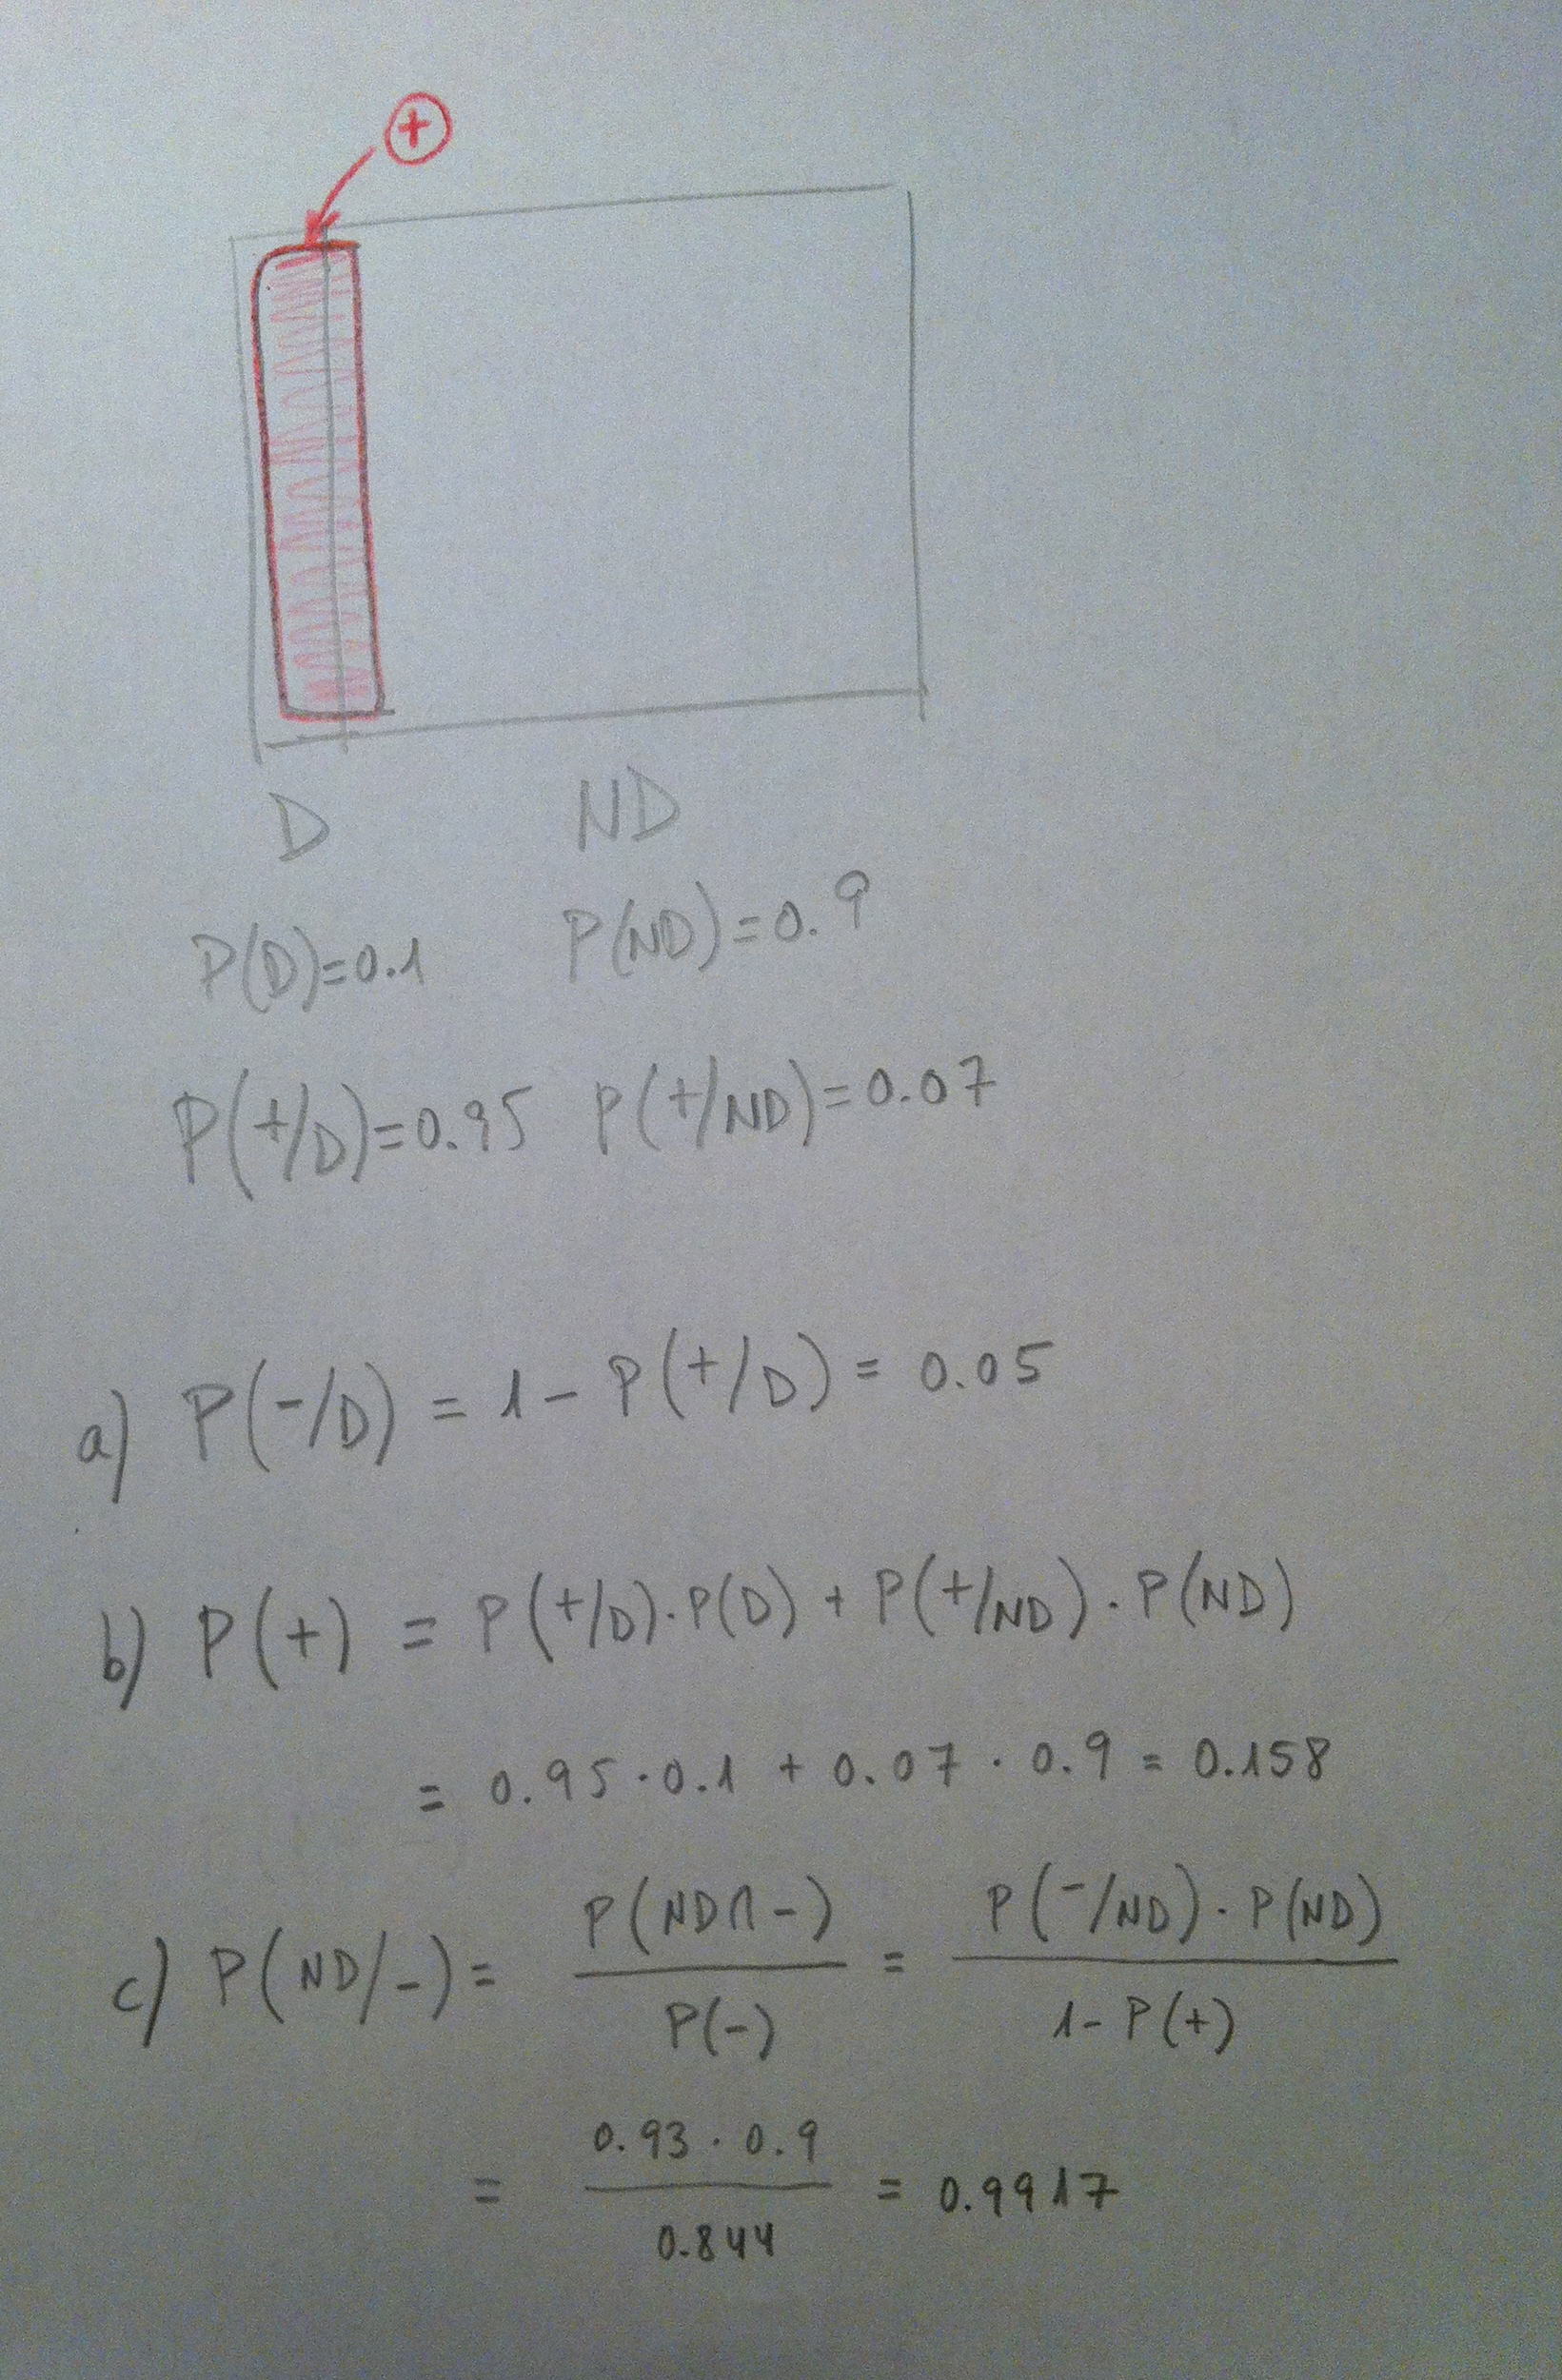 +
D ND
P(D)=0.1 P(ND)=0.9
P(+/D)=0.95 P(+/ND)=0.07
a) P(-/D) = 1 - P(+/D) = 0.05
b) P(+) = P(+/D)·P(D) + P(+/ND)·P(ND)
= 0.95·0.1 + 0.07·0.9 = 0.158
c) P(ND/-) = P(ND∩-) / P(-) = P(-/ND)·P(ND) / 1-P(+)
= 0.93·0.9 / 0.844 = 0.9917